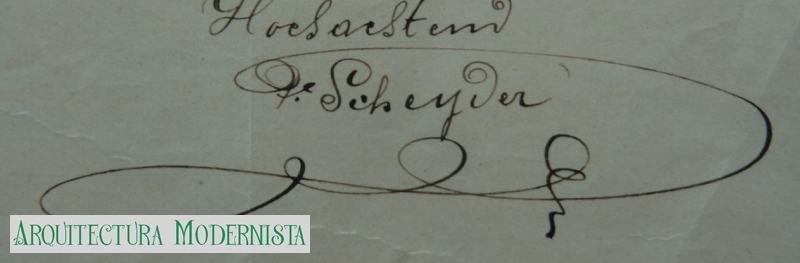 Hochachtend
P. Scheyder
ARQUITECTURA MODERNISTA